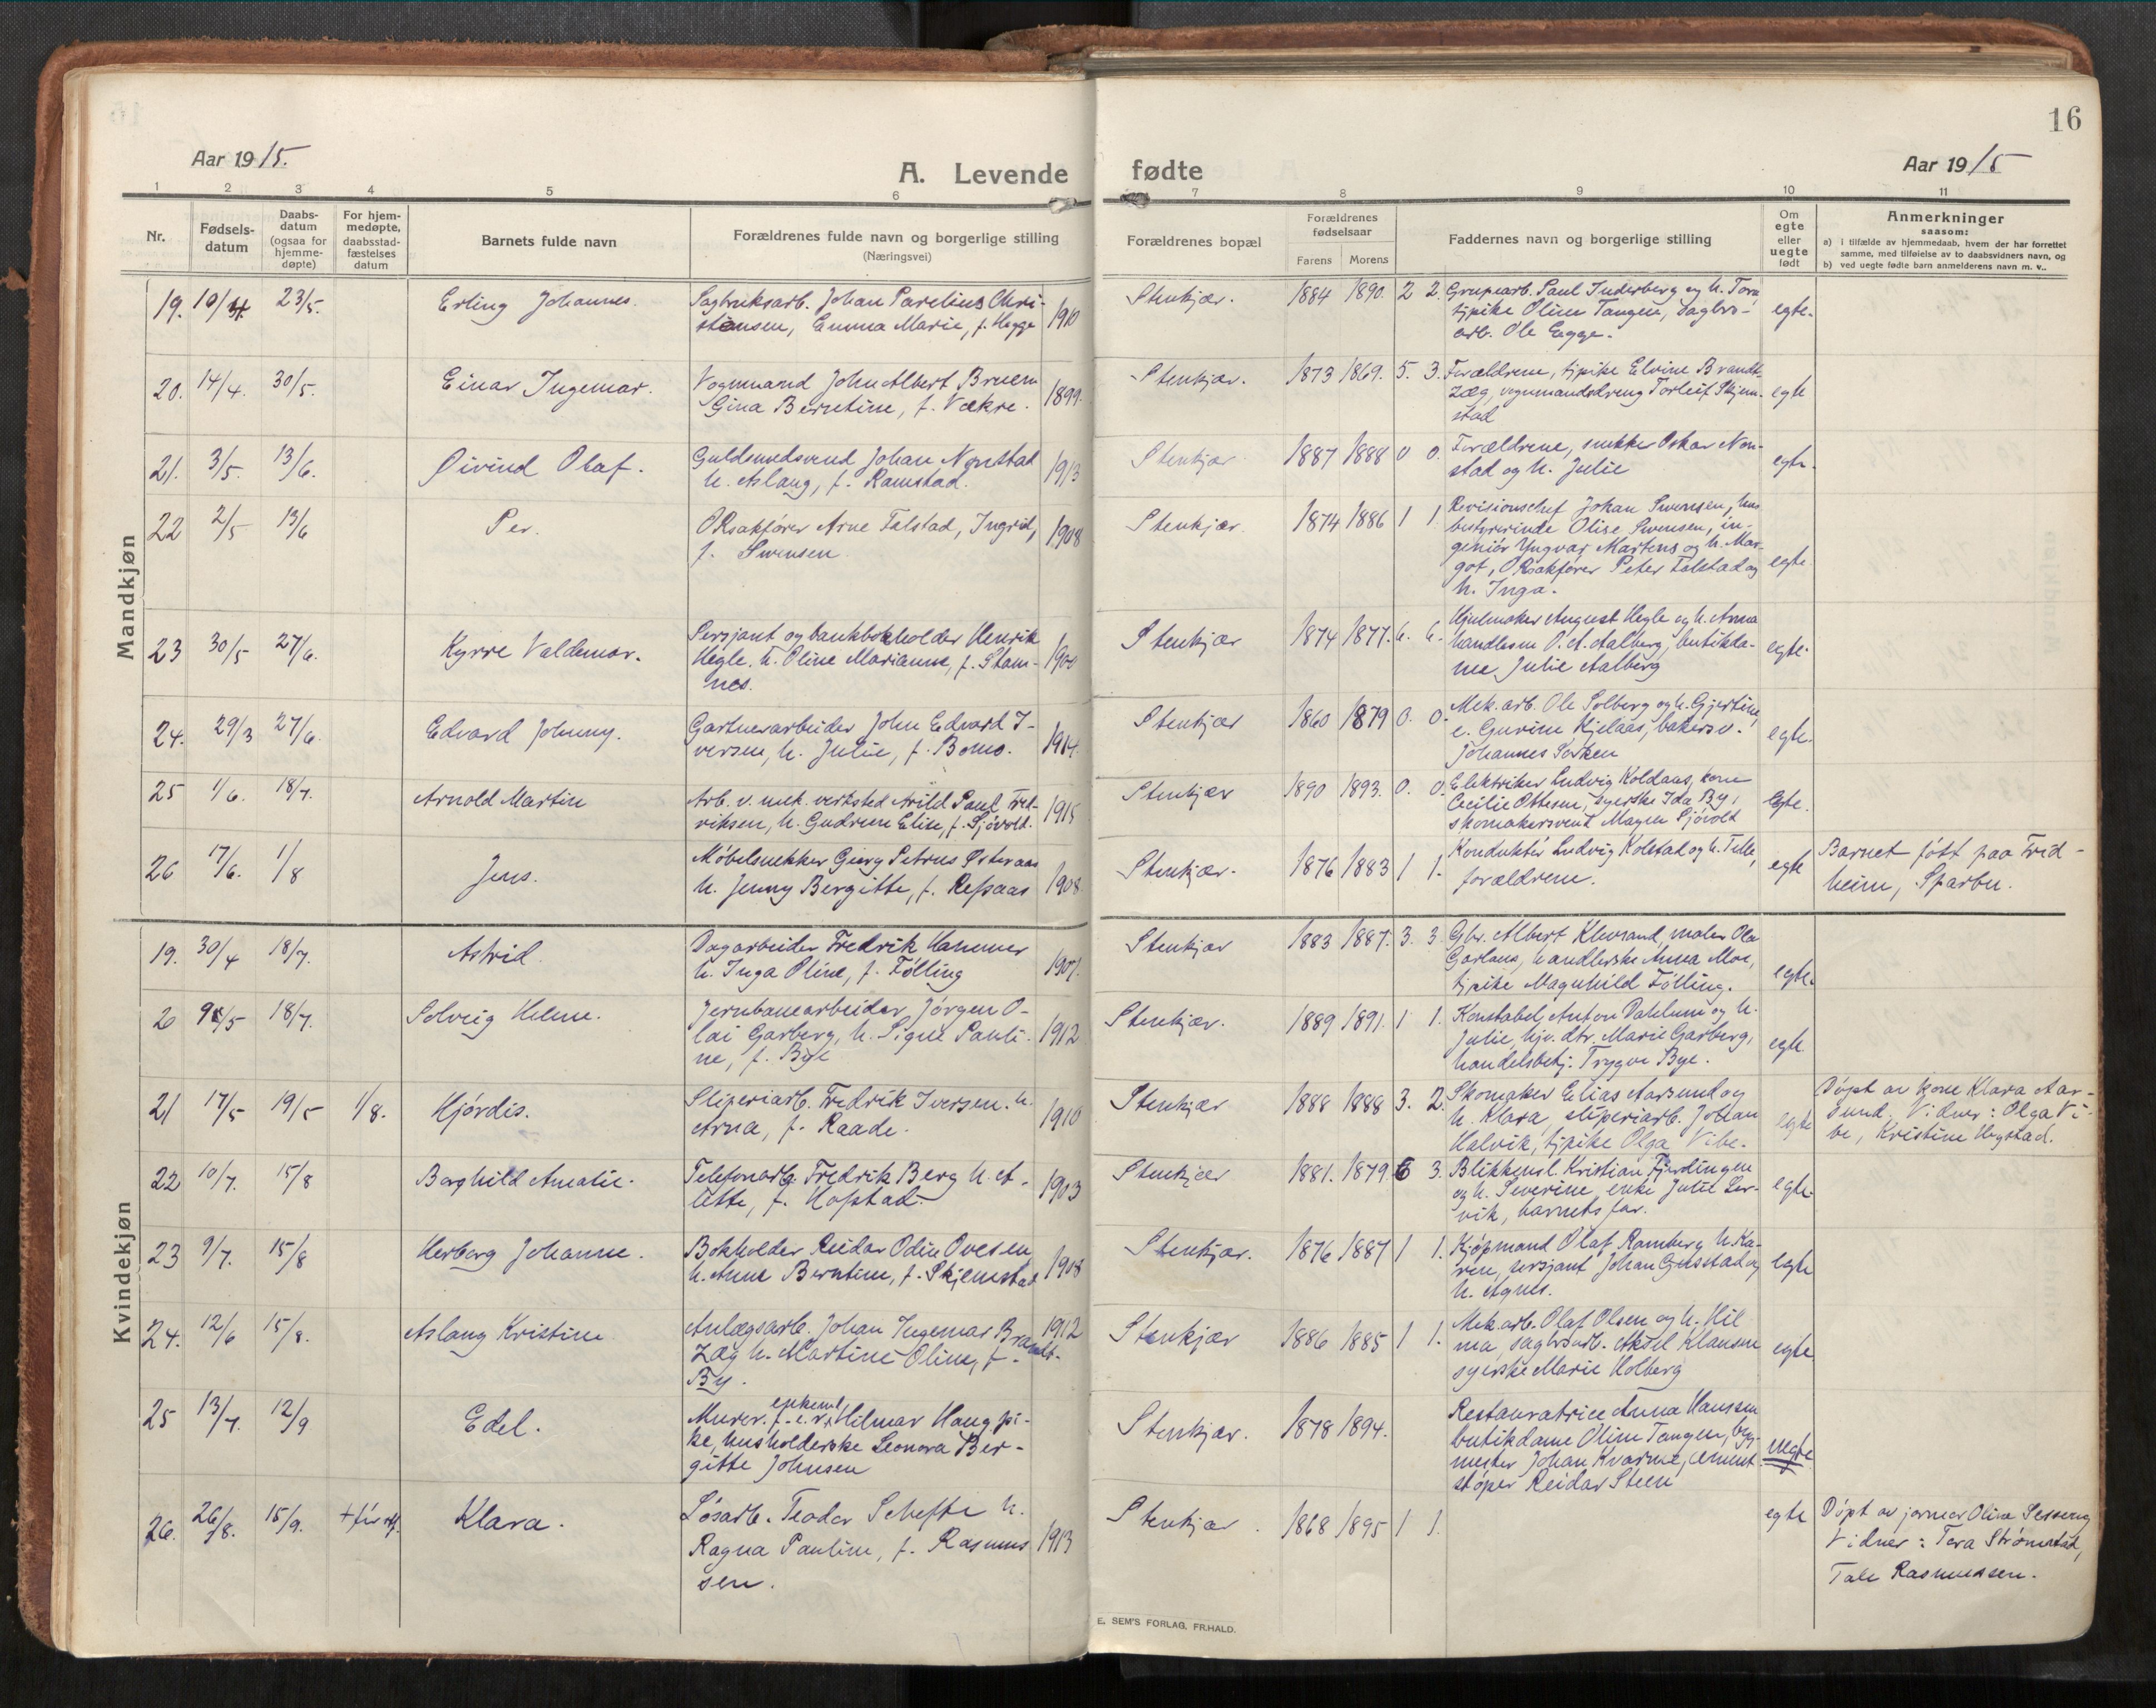 16
Aar 1915.
A. Levende fødte
Aar 1915
1 2 3 4 5 6 7 8 9 10 11
Nr.
Fødsels-
datum
Daabs-
datum
(ogsaa for
hjemme-
døpte)
For hjem-
medøpte,
daabsstad-
fæstelses
datum
Barnets fulde navn
Forældrenes fulde navn og borgerlige stilling
(Næringsvei)
Forældrenes bopæl
Forældrenes
fødselsaar
Farens Morens
Faddernes navn og borgerlige stilling
Om
egte
eller
uegte
født
Anmerkninger
saasom:
a) i tilfælde av hjemmedaab, hvem der har forrettet
samme, med tilføielse av to daabsvidners navn, og
b) ved uegte fødte barn anmelderens navn m. v..
Mandkjøn
19. 10/4. 23/5. Erling Johannes.
Sagbruksarb. Johan Parelius Chri-
stensen, Emma Marie, f. Hegge 1910
Stenkjær. 1884 1890. 2 2.
Grupearb. Paul Inderberg og h. Tora,
tjpike Oline Tangen, dagbro-
arb. Ole Egge.
egte.
20. 14/4. 30/5. Einar Ingemar.
Vognmand John Albert Bruem
Gina Berntine, f. Vekre. 1899.
Stenkjær. 1873 1869. 5. 3.
Forældrene, tjpike Elvine Brandt-
zæg, vognmandsdreng Torleif Skjem-
stad
egte
21. 3/5. 13/6. Øivind Olaf.
Guldsmedsvend Johan Nonstad
h. Aslaug, f. Ramstad. 1913
Stenkjær 1887 1888 0 0.
Forældrene, snekker Oskar Non-
stad og h. Julie
egte.
22 2/5 13/6 Per.
ORsakfører Arne Falstad, Ingrid,
f. Swensen. 1908
Stenkjær. 1874 1886 1 1
Revisionschef Johan Swensen, hus
bestyrerinde Olise Swensen, in-
geniør Yngvar Martens og h. Mar-
got, ORsakfører Peter Falstad og
h. Inga.
egte.
23 30/5 27/6. Kyrre Valdemar.
Sersjant og bankbokholder Henrik
Hegle. h. Oline Marianne, f. Stam-
nes. 1901
Stenkjær 1874 1877. 6. 6.
Hjulmaker August Hegle og h. Anna
handlesm O. A. Aalberg, butikda-
me Julie Aalberg
egte.
24. 29/3 27/6. Edvard Johnny.
Gartnerarbeider John Edvard I-
versen, h. Julie, f. Bomo. 1914.
Stenkjær 1860 1879 0. 0.
Mek. arb. Ole Solberg og h. Gjertine,
e. Gurine Hjelaas, bakersv.
Johannes Sorken
egte.
25 1/6. 18/7. Arnold Martin
Arb. v. mek. verksted Arild Paul Fred-
riksen, h. Gudrun Elise, f. Sjövold. 1915
Stenkjær 1890 1893. 0. 0.
Elektriker Ludvig Koldaas, kone
Cecilie Ottesen, syerske Ida By,
skomakersvend Magne Sjövold
Egte.
26 17/6. 1/8 Jens.
Møbelsnekker Georg Petrus Østeraas
h. Jenny Bergitte, f. Refsaas 1908.
Stenkjær. 1876 1883 1 1.
Konduktör Ludvig Kolstad og h. Telle,
forældrene.
egte
Barnet føtt paa Frid-
heim, Sparbu.
Kvindekjøn
19. 30/4 18/7. Astrid.
Dagarbeider Fredrik Hammer
h. Inga Oline, f. Følling 1907.
Stenkjær 1883 1887. 3. 3
Gbr. Albert Kherand, maler Ola
Garlaus, handlerske Anna Moe,
tjpike Magnhild Følling.
egte.
20 9/5 18/7. Solveig Helene.
Jernbanearbeider Jörgen O-
lai Garberg, h. Signe Pauli-
ne, f. Bye 1912
Stenkjær. 1889 1891. 1 1.
Konstabel Anton Dahlum og h.
Julie, hjv. dtr. Marie Garberg,
handelsbetj. Trygve Bye.
egte.
21 17/5 19/5 1/8. Hjördis.
Sliperiarb. Fredrik Iversen. h.
Arna, f. Raade. 1910
Stenkjær 1888 1888 3. 2.
Skomaker Elias Aarsund og
h. Klara, sliperiarb. Johan
Halvik, tjpike Olga Vibe.
egte
Döpt av kone Klara Aar-
sund. Vidner: Olga Vi-
be, Kristine Hegstad.
22 10/7. 15/8 Borghild Amalie.
Telefonarb. Fredrik Berg h. A-
lette, f. Hofstad. 1903
Stenkjær 1881. 1879. 6 3.
Blikkensl. Kristian Fjerdingen
og h. Severine, enke Julie Ler-
vik, barnets far.
egte.
23 9/7. 15/8 Herborg Johanne.
Bokholder Reidar Odin Ovesen,
h. Anne Berntine, f. Skjemstad 1908
Stenkjær. 1876 1887 1 1.
Kjøpmand Olaf Ramberg h. Ka-
ren, sersjant Johan Gjesstad og
h. Agnes.
egte
24. 12/6 15/8. Aslaug Kristine
Anlægsarb. Johan Ingemar Brandt-
zæg h. Martine Oline, f.
By. 1912
Stenkjær 1886 1885 1 1.
Mek. arb. Olaf Olsen og h. Hil
ma, sagbrarb. Aksel Klausen
syerske Marie Holberg
egte.
25 13/7. 12/9 Edel.
Murer. f. e. v. enkeml Hilmar Haug, pi-
ke, husholderske Leonora Ber-
gitte Johnsen
Stenkjær. 1878 1894.
Restauratrice Anna Hanssen
butikdame Oline Tangen, byg-
mester Johan Kvarme, cement
støper Reidar Steen
uegte
26. 26/8. 15/9. Klara.
Løsarb. Teodor Schefte h.
Ragna Pauline, f. Rasmus
sen. 1913
Stenkjær. 1868 1895 1 1.
egte
Döpt av jormor Oline Sesseng
Vidner: Tora Strømstad,
Tale Rasmussen.
E. SEM'S FORLAG, FR.HALD.